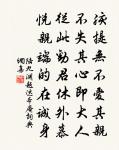 孩提無不愛其親
不失其心即大人
從此勸君休外慕
悅親端的在誠身
陸九淵題達本庵詞典